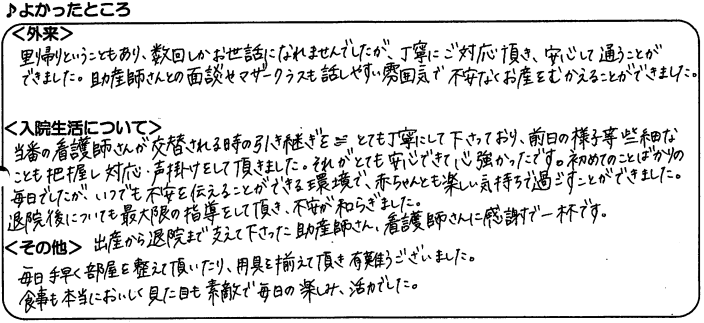 ♪よかったところ
<外来>
里帰りということもあり、数回しかお世話になれませんでしたが、丁寧にご対応頂き、安心して通うことが
できました。助産師さんとの面談やマザークラスも話しやすい雰囲気で不安なくお産をむかえることができました。
<入院生活について>
当番の看護師さんが交替される時の引き継ぎを とても丁寧にして下さっており、前日の様子等些細な
ことも把握し対応・声掛けをして頂きました。それがとても安心できて心強かったです。初めてのことばかりの
毎日でしたが、いつでも不安を伝えることができる環境で、赤ちゃんとも楽しい気持ちで過ごすことができました。
退院後についても最大限の指導をして頂き、不安が和らぎました。
出産から退院まで支えて下さった助産師さん、看護師さんに感謝で一杯です。
<その他>
毎日手早く部屋を整えて頂いたり、用具を揃えて頂き有難うございました。
食事も本当においしく見た目も素敵で毎日の楽しみ、活力でした。